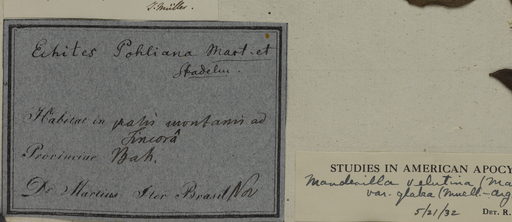 J. Müller.
Echites Pohliana Mart. et
Stadelm.
Habitat in pratis montanis ad
Sincorâ
Provinciae Bah.
Dr Martius Iter Brasil. Nov
STUDIES IN AMERICAN APOCY
Mandevilla velutina (Ma
var. glabra (Muell-Arg
5/21/32 DET. R.